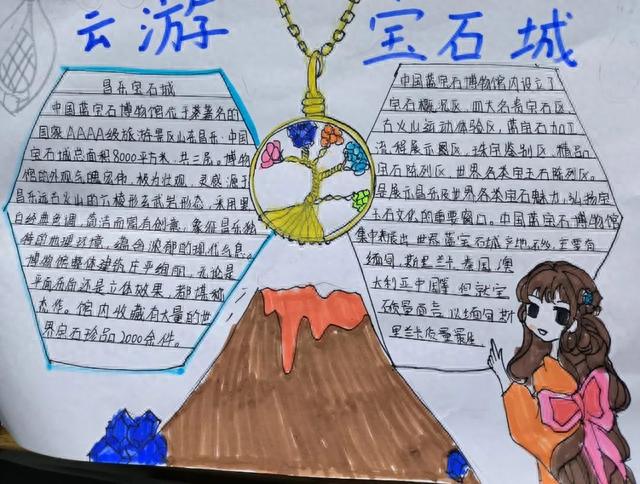 云游 宝石城
昌乐宝石城
中国蓝宝石博物馆位于著名的
国家AAAA级旅游景区山东昌乐中国
宝石城总面积8000平方米,共三层。博物
馆的外观气魄宏伟,极为壮观,灵感源于
昌乐远古火山的六棱形玄武岩形态,采用黑
白经典色调,简洁而富有创意,象征昌乐独
特的地理环境,蕴含浓郁的现代气息。
博物馆整体建筑庄严绚丽,无论是
平面布局还是立体效果,都堪称
杰作。馆内收藏有大量的世
界宝石珍品2000余件。
中国蓝宝石博物馆内设立了
宝石概况区、四大名贵宝石区、
古火山运动体验区、蓝宝石加工
流程展示区、珠宝鉴别区、精品
宝石陈列区、世界各类宝玉石陈列区。
是展示昌乐及世界各类宝石魅力,弘扬宝
玉石文化的重要窗口。中国蓝宝石博物馆
集中展出世界蓝宝石城产地石级,主要有
缅甸、斯里兰卡、泰国、澳
大利亚中国等,但就宝
石质量而言,以缅甸、斯
里兰卡质量最佳